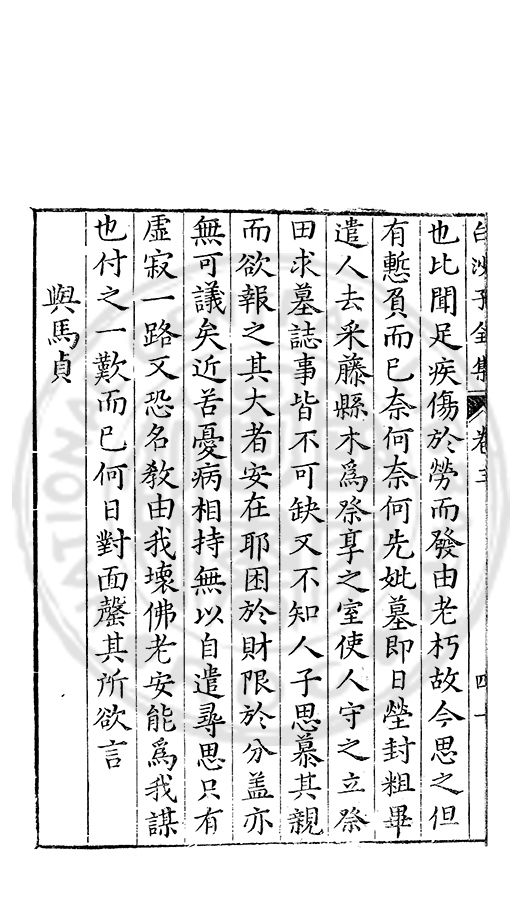 白沙子全集 卷三 四十
也比聞足疾傷於勞而發由老朽故今思之但
有慙負而已奈何奈何先妣墓即日塋封粗畢
遣人去采藤縣木爲祭享之室使人守之立祭
田求墓誌事皆不可缺又不知人子思慕其親
而欲報之其大者安在耶困於財限於分盖亦
無可議矣近苦憂病相持無以自遣尋思只有
虛寂一路又恐名教由我壞佛老安能爲我謀
也付之一歎而已何日對面罄其所欲言
與馬貞